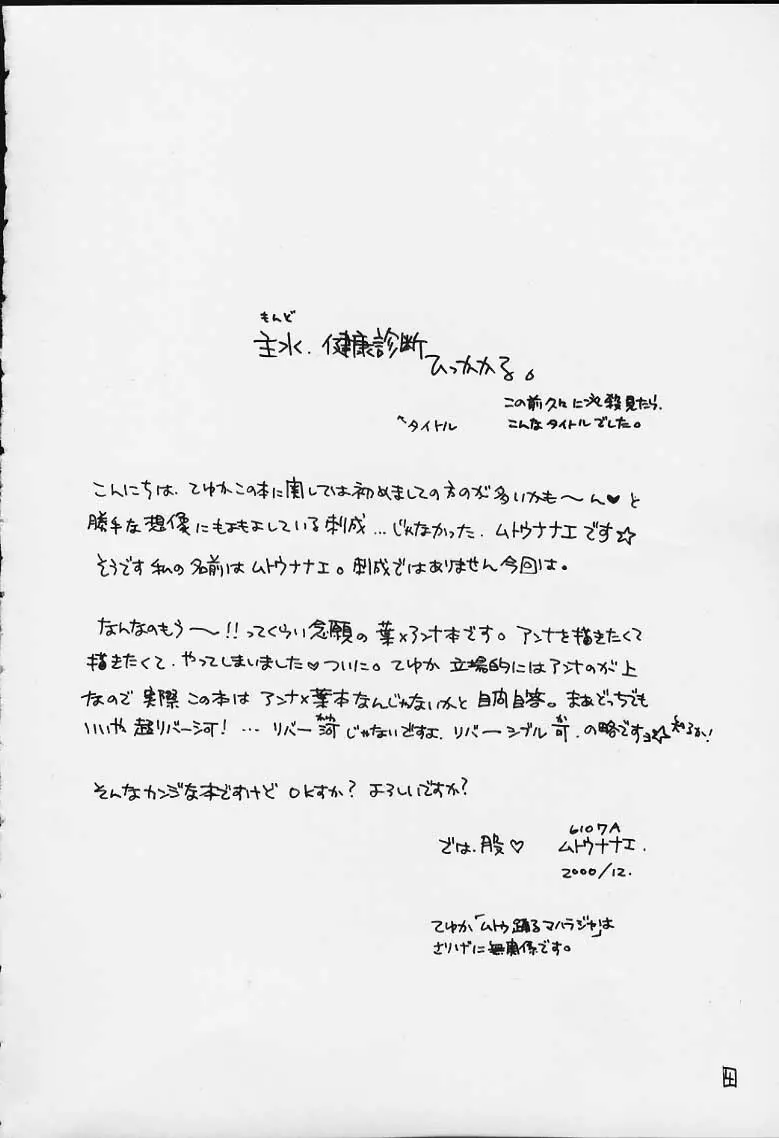 もんど
主水、健康診断
ひっかかる。
この前久々に必殺見たら、
こんなタイトルでした。
↖タイトル
こんにちは、てゆかこの本に関しては初めましての方のが多いかも〜ん♥と
勝手な想像にもよもよしている刺成…じゃなかった、ムトウナナエです☆
そうです私の名前はムトウナナエ。刺成ではありません今回は。
なんなのもう〜!!ってくらい念願の葉×アンナ本です。アンナを描きたくて
描きたくて、やってしまいました♥ついに。てゆか立場的にはアンナのが上
なので実際この本はアンナ×葉本なんじゃないかと自問自答。まあどっちでも
いいや超リバー河!…リバー河じゃないですよ、リバーシブル可、の略ですョ☆知るか!
そんなカンジな本ですけどOKすか?よろしいですか?
では、股♡
6107A
ムトウナナエ.
2000/12.
てゆか「ムトウ踊るマハラジャ」は
さりげに無関係です。
4